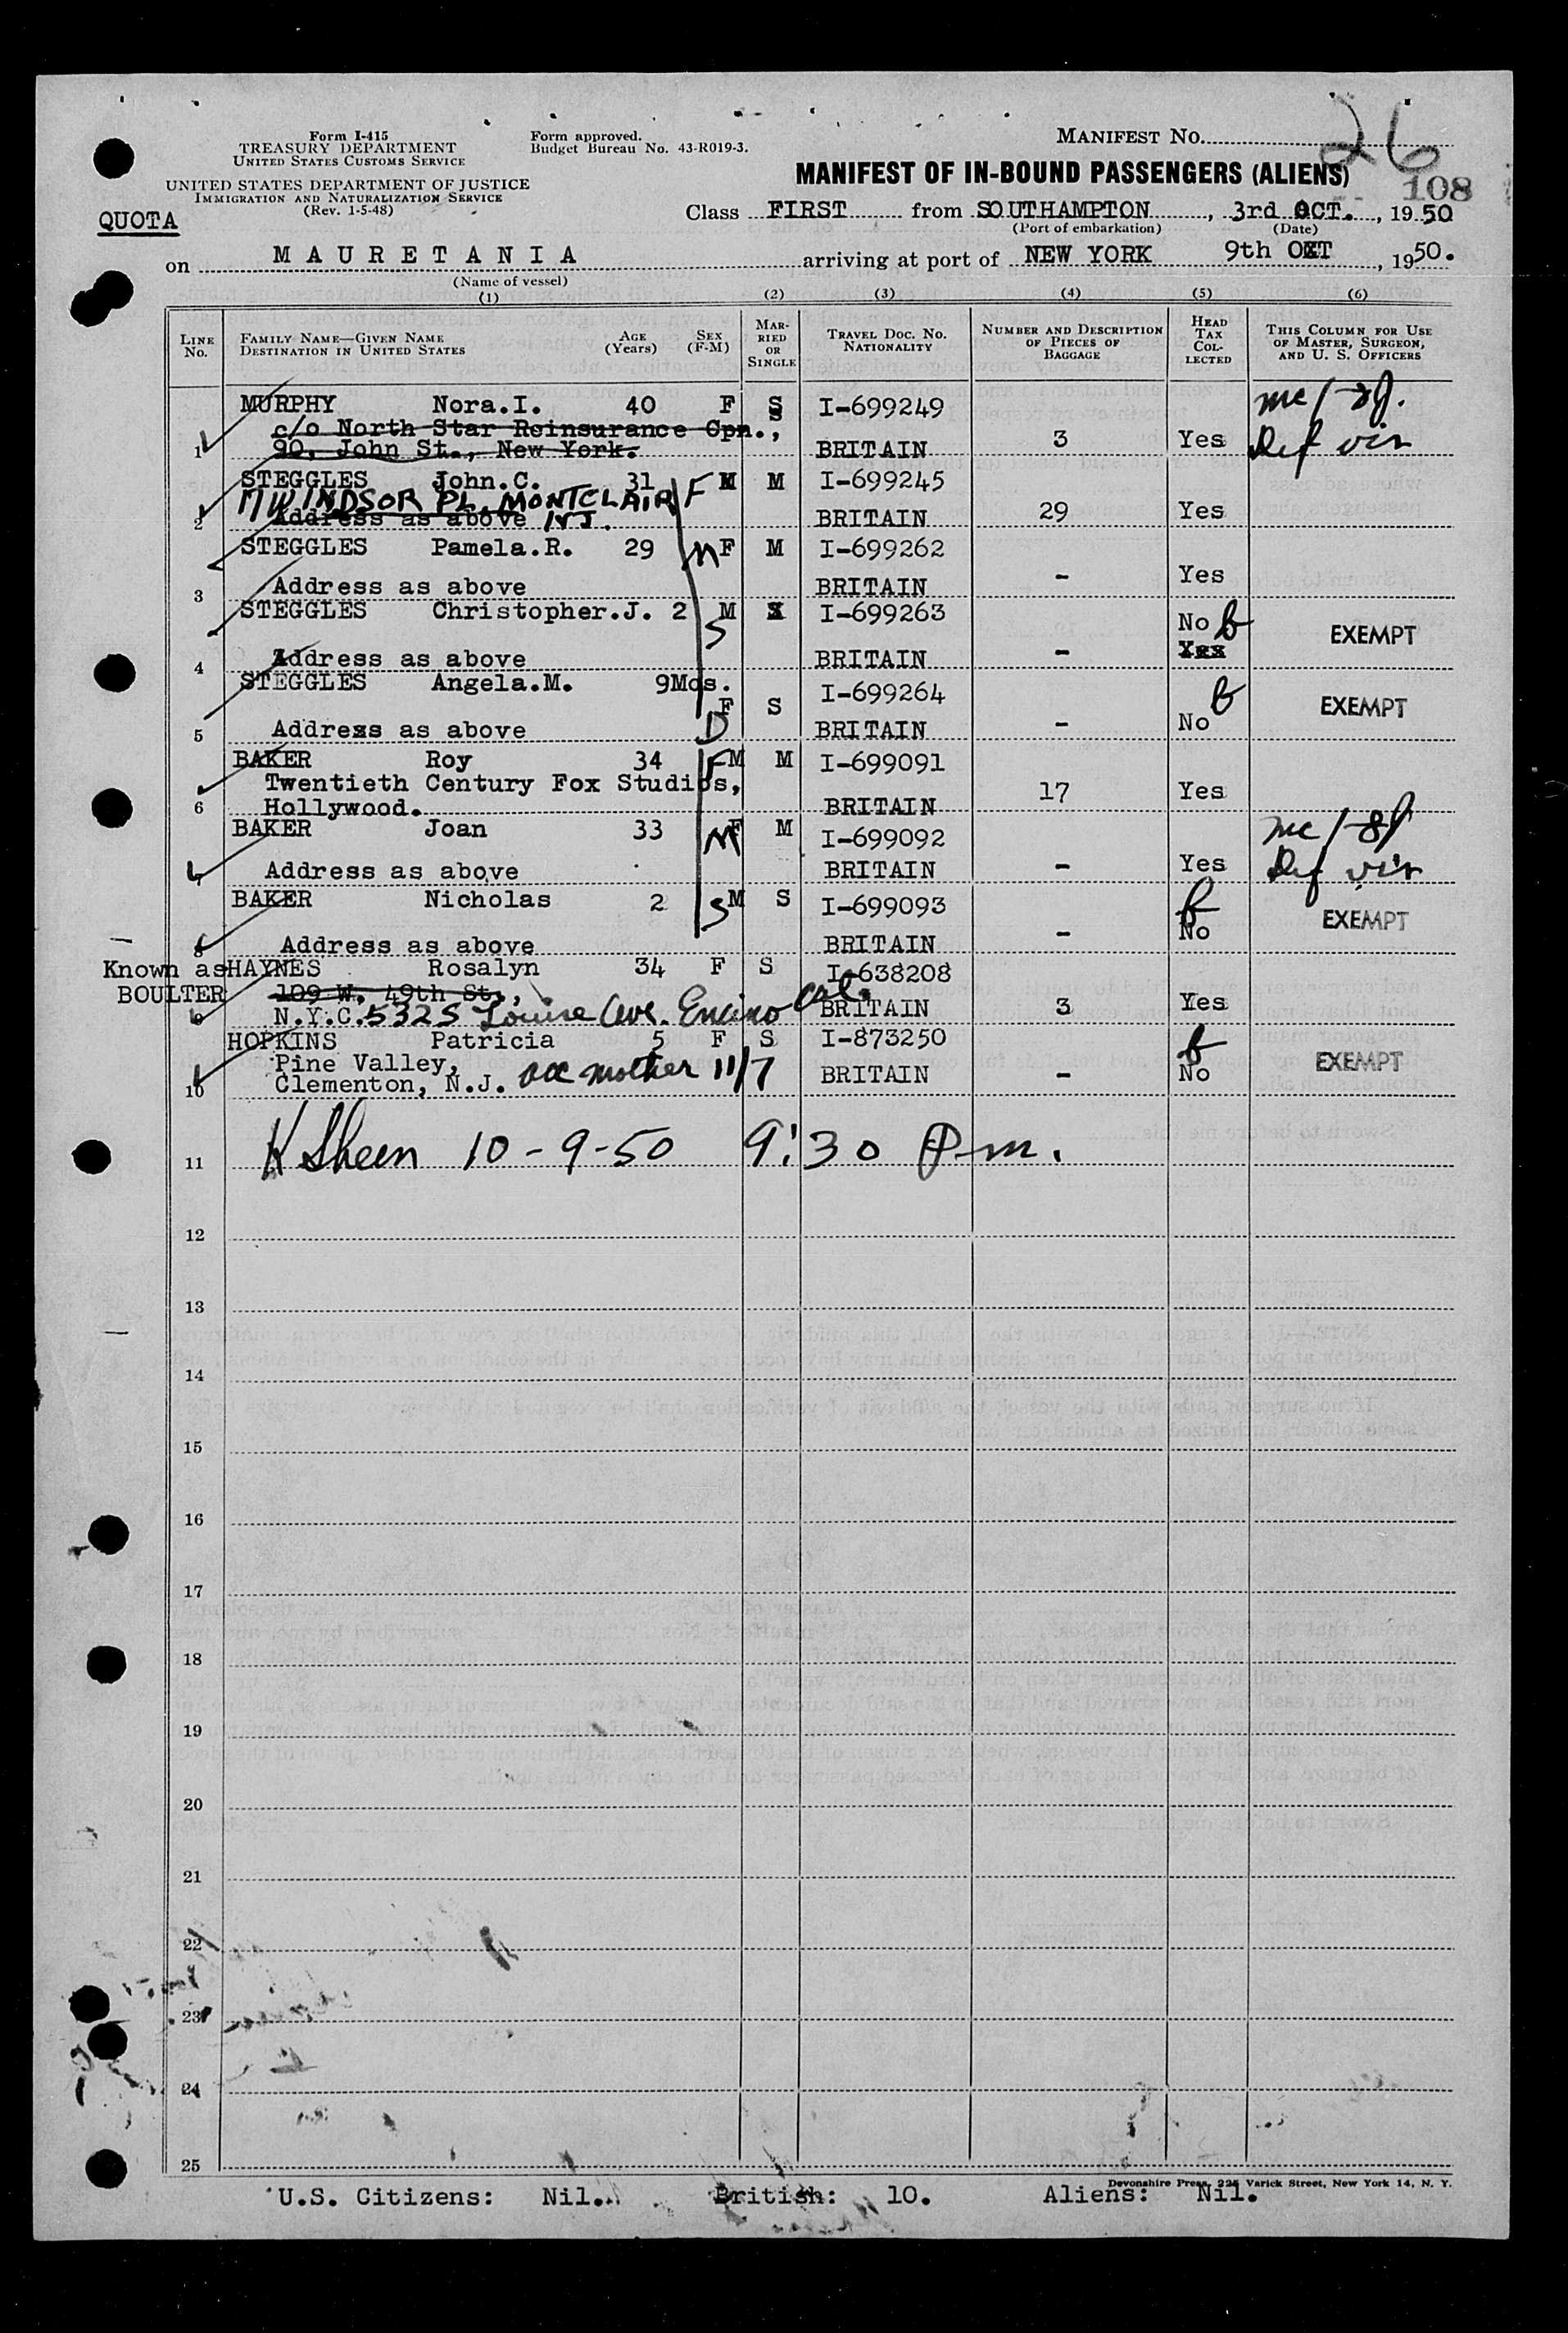 Form I-415
TREASURY DEPARTMENT
UNITED STATES CUSTOMS SERVICE
UNITED STATES DEPARTMENT OF JUSTICE
IMMIGRATION AND NATURALIZATION SERVICE
(Rev. 1-5-48)
Form approved.
Budget Bureau No. 43-R019-3.
MANIFEST NO. 26
MANIFEST OF IN-BOUND PASSENGERS (ALIENS)
108
QUOTA
Class FIRST from SOUTHAMPTON, 3rd OCT., 1950
(Port of embarkation) (Date)
on MAURETANIA arriving at port of NEW YORK 9th OCT, 1950.
(Name of vessel)
(1) (2) (3) (4) (5) (6)
LINE No. FAMILY NAME—GIVEN NAME DESTINATION IN UNITED STATES AGE (Years) SEX (F-M) MARRIED OR SINGLE TRAVEL DOC. NO. NATIONALITY NUMBER AND DESCRIPTION OF PIECES OF BAGGAGE HEAD TAX COLLECTED THIS COLUMN FOR USE OF MASTER, SURGEON, AND U. S. OFFICERS
MURPHY Nora.I. 40 F S I-699249
c/o North Star Reinsurance Cpn.,
1 90, John St., New York. BRITAIN 3 Yes Def vis
STEGGLES John.C. 31 F M M I-699245
17 WINDSOR PL. MONTCLAIR
2 Address as above N.J. BRITAIN 29 Yes
STEGGLES Pamela.R. 29 M F M I-699262
3 Address as above BRITAIN - Yes
STEGGLES Christopher.J. 2 M S I-699263 No EXEMPT
4 Address as above BRITAIN - Yes
STEGGLES Angela.M. 9Mos. F S I-699264 EXEMPT
5 Address as above D BRITAIN - No
BAKER Roy 34 F M M I-699091
Twentieth Century Fox Studios,
6 Hollywood. BRITAIN 17 Yes
BAKER Joan 33 M F M I-699092
7 Address as above BRITAIN - Yes Def vis
BAKER Nicholas 2 S M S I-699093 EXEMPT
8 Address as above BRITAIN - No
Known as HAYNES Rosalyn 34 F S I-638208
BOULTER 109 W. 49th St.,
9 N.Y.C. 5325 Louise Ave. Encino Cal. BRITAIN 3 Yes
HOPKINS Patricia 5 F S I-873250
Pine Valley,
10 Clementon, N.J. acc mother 11/7 BRITAIN - No EXEMPT
11 K Sheen 10-9-50 9:30 Pm.
12
13
14
15
16
17
18
19
20
21
22
23
24
25
Devonshire Press, 225 Varick Street, New York 14, N. Y.
U.S. Citizens: Nil. British: 10. Aliens: Nil.